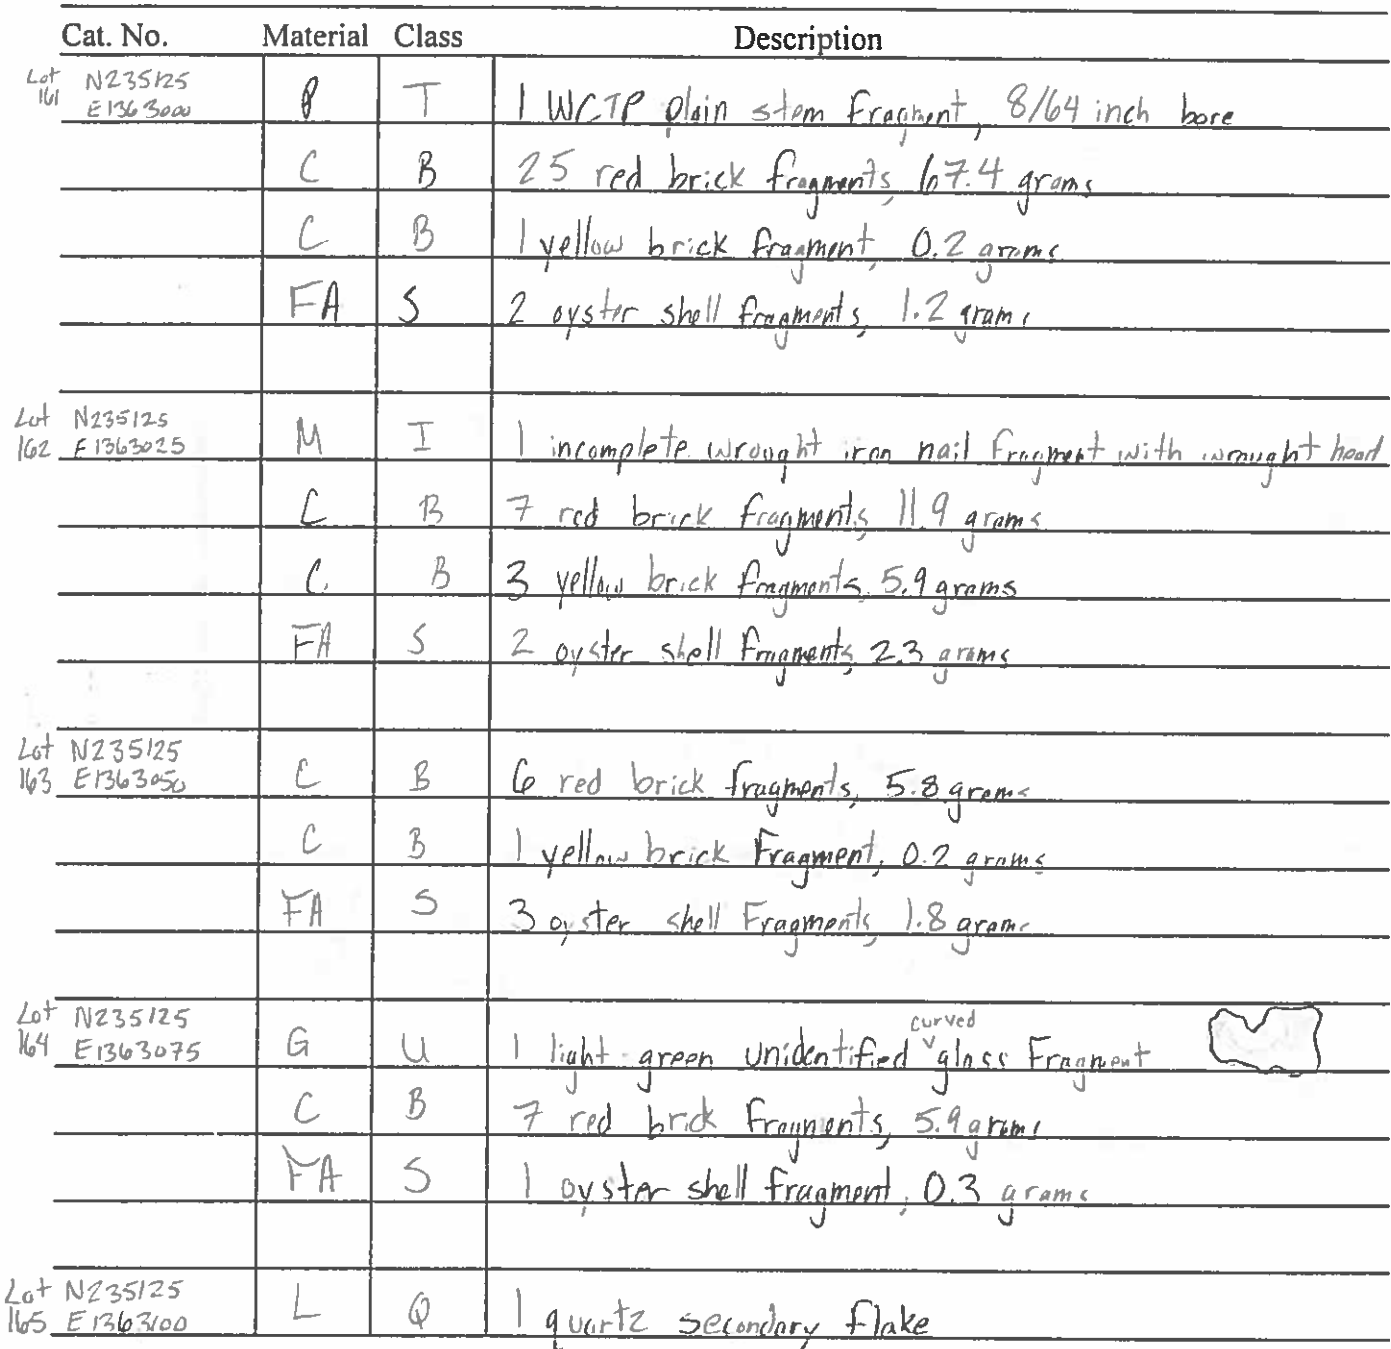 Cat. No. Material Class Description
Lot N235125
161 E1363000 P T 1 WCTP plain stem fragment, 8/64 inch bore
C B 25 red brick fragments, 67.4 grams
C B 1 yellow brick fragment, 0.2 grams
FA S 2 oyster shell fragments, 1.2 grams
Lot N235125
162 E1363025 M I 1 incomplete wrought iron nail fragment with wrought head
C B 7 red brick fragments, 11.9 grams
C B 3 yellow brick fragments, 5.9 grams
FA S 2 oyster shell fragments, 2.3 grams
Lot N235125
163 E1363050 C B 6 red brick fragments, 5.8 grams
C B 1 yellow brick Fragment, 0.2 grams
FA S 3 oyster shell Fragments, 1.8 grams
Lot N235125
164 E1363075 G U 1 light green unidentified curved glass Fragment
C B 7 red brick Fragments, 5.9 grams
FA S 1 oyster shell fragment, 0.3 grams
Lot N235125
165 E1363100 L Q 1 quartz secondary flake